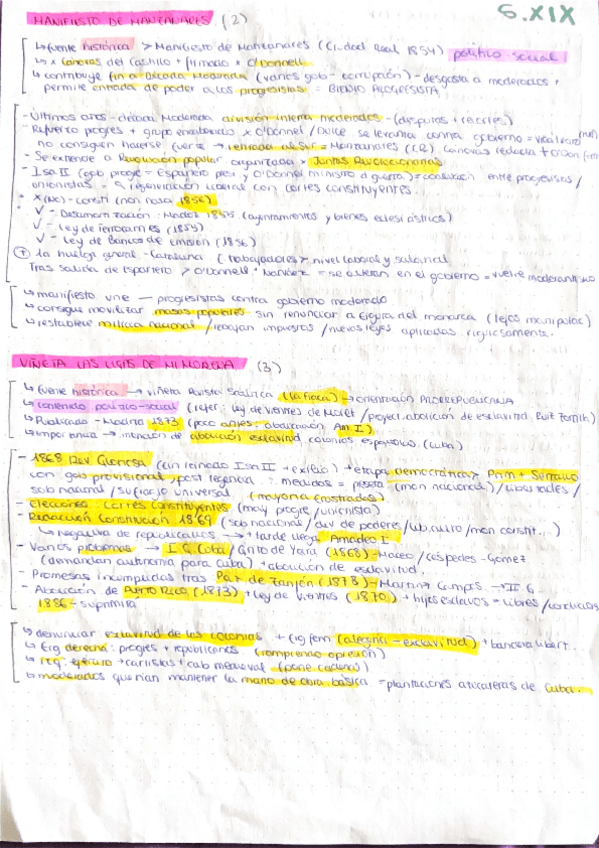 MANIFIESTO DE MANZANARES (2)
S.XIX
↳ fuente histórica > Manifiesto de Manzanares (Ciudad Real 1854) político social
↳ x Cánovas del Castillo + firmado x O'Donnell
↳ contribuye fin a Década Moderada (varios gob - corrupción) - desgasta a moderados +
permite entrada de poder a los progresistas = BIENIO PROGRESISTA
- Últimos años - década Moderada división interna moderados - (disputas + recortes)
- Refuerzo progres + grupo x O'Donnell / Dulce se levanta contra gobierno = Vicálvaro
no consiguen hacerse fuerte → retirada al Sur = Manzanares (C.R.) Cánovas redacta +
- Se extiende a Revolución popular organizada x Juntas Revolucionarias
- Isa II (gob progre = Espartero presi y O'Donnell ministro d guerra) = coalición entre progresistas /
unionistas = regeneración liberal con cortes constituyentes.
* X (No) - consti (non nata) 1856)
✓ - Desamortización: Madoz 1855 (ayuntamientos y bienes eclesiásticos)
✓ - Ley de ferrocarriles (1855)
✓ - Ley de Bancos de emisión (1856)
+ 1a huelga general - Cataluña ( trabajadores > nivel laboral y salarial
Tras salida de Espartero > O'Donnell + Narváez = se alteran en el gobierno = vuelve moderantismo
↳ manifiesto une — progresistas contra gobierno moderado
↳ consigue movilizar masas populares sin renunciar a figura del monarca (lejos manipulac)
↳ restablece milicia nacional / rebajan impuestos / nuevas leyes aplicadas rigurosamente.
VIÑETA LAS LIGAS DE MI MORENA (3)
↳ fuente histórica → viñeta Revista Satírica (La flaca) → orientación PROREPUBLICANA
↳ contenido político-social (refer: ley de vientres de Moret / proyect. abolición de esclavitud Ruiz Zorrilla)
↳ Publicado - Madrid 1873 (poco antes: abdicación Am I)
↳ importancia → intención de abolición esclavitud colonias españolas (Cuba)
- 1868 Rev. Gloriosa (fin reinado Isa II + exilio) + etapa democrática > Prim + Serrano
con gob provisional, post regencia : medidas = peseta (mon nacional) / libertades /
sob nacional / sufragio universal (mayoría
- Elecciones: Cortes Constituyentes (mayi progre / unionista)
- Redacción Constitución 1869 (sob nacional / div de poderes / lib culto / mon constit...)
↳ negativa de republicanos → + tarde llega Amadeo I
- Varios problemas → I G. Cuba / Grito de Yara (1868) - Maceo / Céspedes - Gomez
(demandan autonomía para Cuba) + abolición de esclavitud.
- Promesas incumplidas tras Paz de Zanjón (1878) - Martínez Camps. → II G.
- Abolición de PUERTO RICO (1873) + ley de Vientres (1870) + hijos esclavos = libres /
1886 - suprimirá
↳ denunciar esclavitud de las colonias + fig fem (alegoría - esclavitud) + bandera libert.
↳ fig derecha: progres + republicanos (rompiendo opresión)
↳ izq. ejército + carlistas + cab medieval (pone cadena)
↳ moderados querían mantener la mano de obra básica = plantaciones azucareras de Cuba.